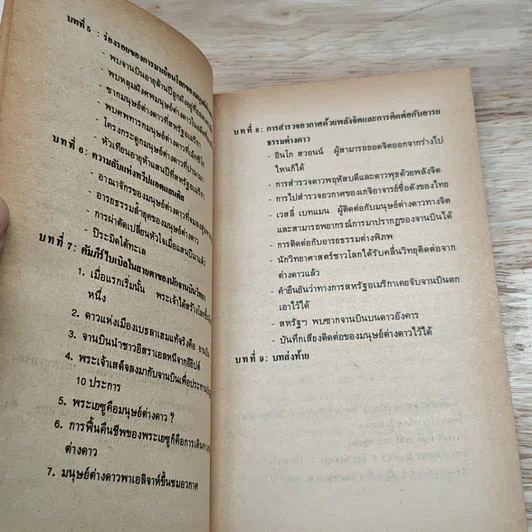 บทที่ 5 : ร่องรอยของการมาเยือนโลก
- พบจานบินอายุล้านปีถูกฝังอยู่ที่
- พบหลุมฝังศพมนุษย์ต่างดาวใน
- ซากมนุษย์ต่างดาวที่สหรัฐอเมริกา
- พบศพทารกมนุษย์ต่างดาวที่เม็กซิโก
- โครงกระดูกมนุษย์ต่างดาวที่ปานามา
- หัวเทียนอายุห้าแสนปีที่สหรัฐอเมริกา
บทที่ 6 : ความลับแห่งทวีปแอตแลนติส
- อาณาจักรของมนุษย์ต่างดาวที่
- อารยธรรมล้ำยุคของมนุษย์ต่างดาว
- การผ่าตัดเปลี่ยนหัวใจเมื่อแสนปีมาแล้ว
- ปิระมิดใต้ทะเล
บทที่ 7 : คัมภีร์ไบเบิลในสายตาของนักจานบินวิทยา
1. เมื่อแรกเริ่มนั้น พระเจ้าได้สร้างโลก
หนึ่ง
2. ดาวแห่งเมืองเบธลาเฮมแท้จริงคือ จานบิน
3. จานบินนำชาวอิสราเอลหนีจากอียิปต์
4. พระเจ้าเสด็จลงมากับจานบินเพื่อประทาน
10 ประการ
5. พระเยซูคือมนุษย์ต่างดาว ?
6. การฟื้นคืนชีพของพระเยซูก็คือการเดินทาง
ต่างดาว
7. มนุษย์ต่างดาวพาเอลิจาห์ขึ้นชมอวกาศ
บทที่ 8 : การสำรวจอวกาศด้วยพลังจิตและการติดต่อกับอารย
ธรรมต่างดาว
- อินโก สวอนน์ ผู้สามารถถอดจิตออกจากร่างไป
ไหนก็ได้
- การสำรวจดาวพฤหัสบดีและดาวพุธด้วยพลังจิต
- การไปสำรวจอวกาศของเกจิอาจารย์ชื่อดังของไทย
- เวสลี่ เบทแมน ผู้ติดต่อกับมนุษย์ต่างดาวทางจิต
และสามารถพยากรณ์การมาปรากฏของจานบินได้
- การติดต่อกับอารยธรรมต่างพิภพ
- นักวิทยาศาสตร์ชาวโลกได้รับคลื่นวิทยุติดต่อจาก
ต่างดาวแล้ว
- คำยืนยันว่าทางการสหรัฐอเมริกาเคยจับจานบินตก
เอาไว้ได้
- สหรัฐฯ พบซากจานบินบนดาวอังคาร
- บันทึกเสียงติดต่อของมนุษย์ต่างดาวไว้ได้
บทที่ 9 : บทส่งท้าย